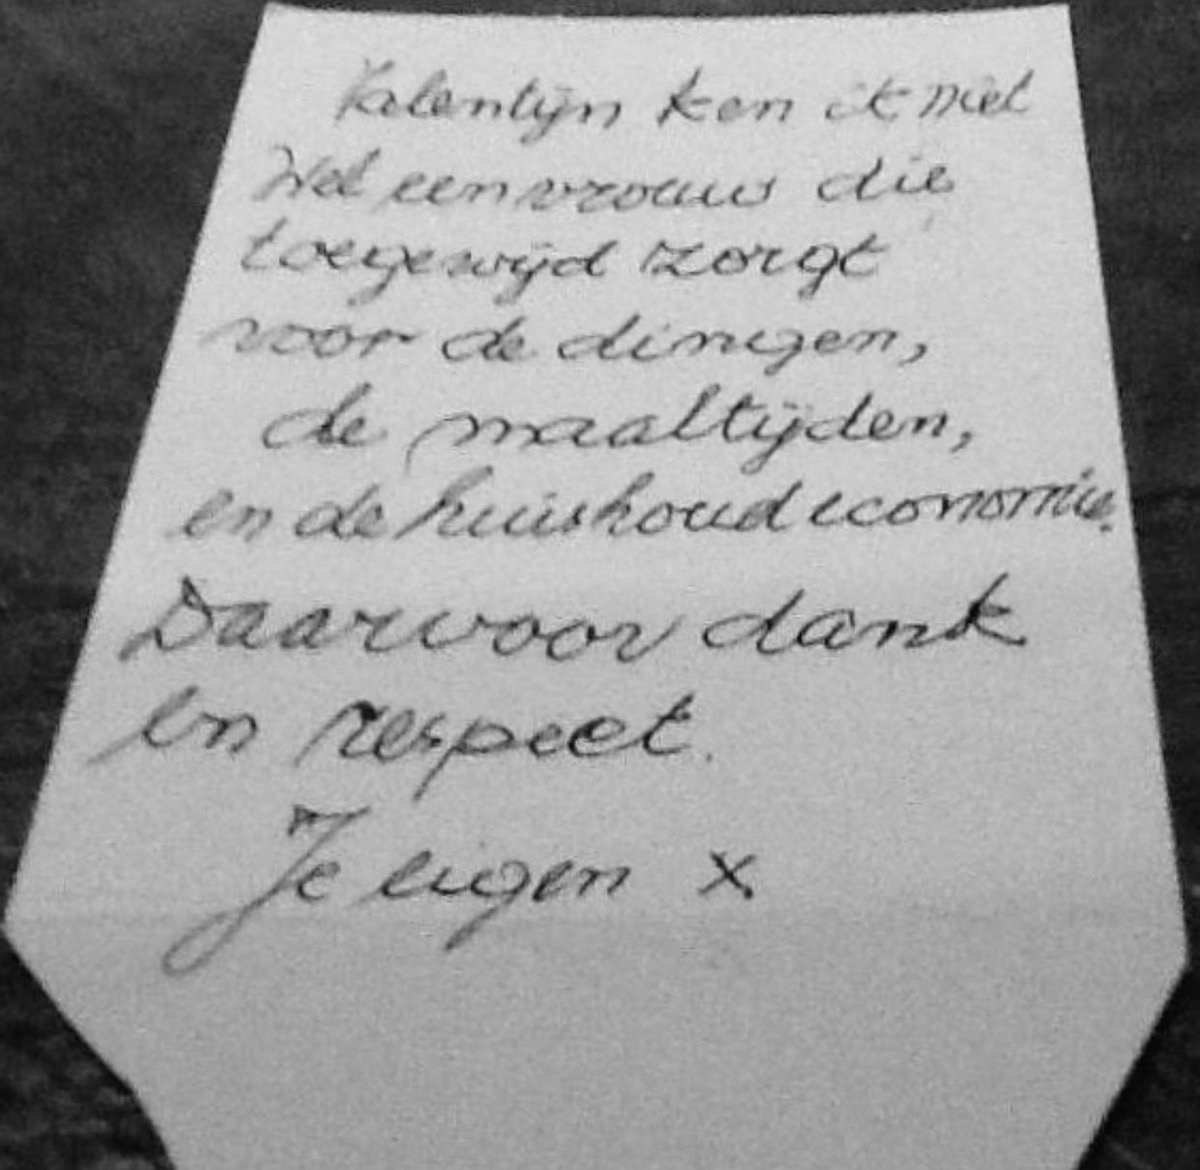 Valentijn ken ik niet
Wel een vrouw die
toegewijd zorgt
voor de dingen,
de maaltijden,
en de huishoudeconomie.
Daarvoor dank
en respect.
Je eigen x